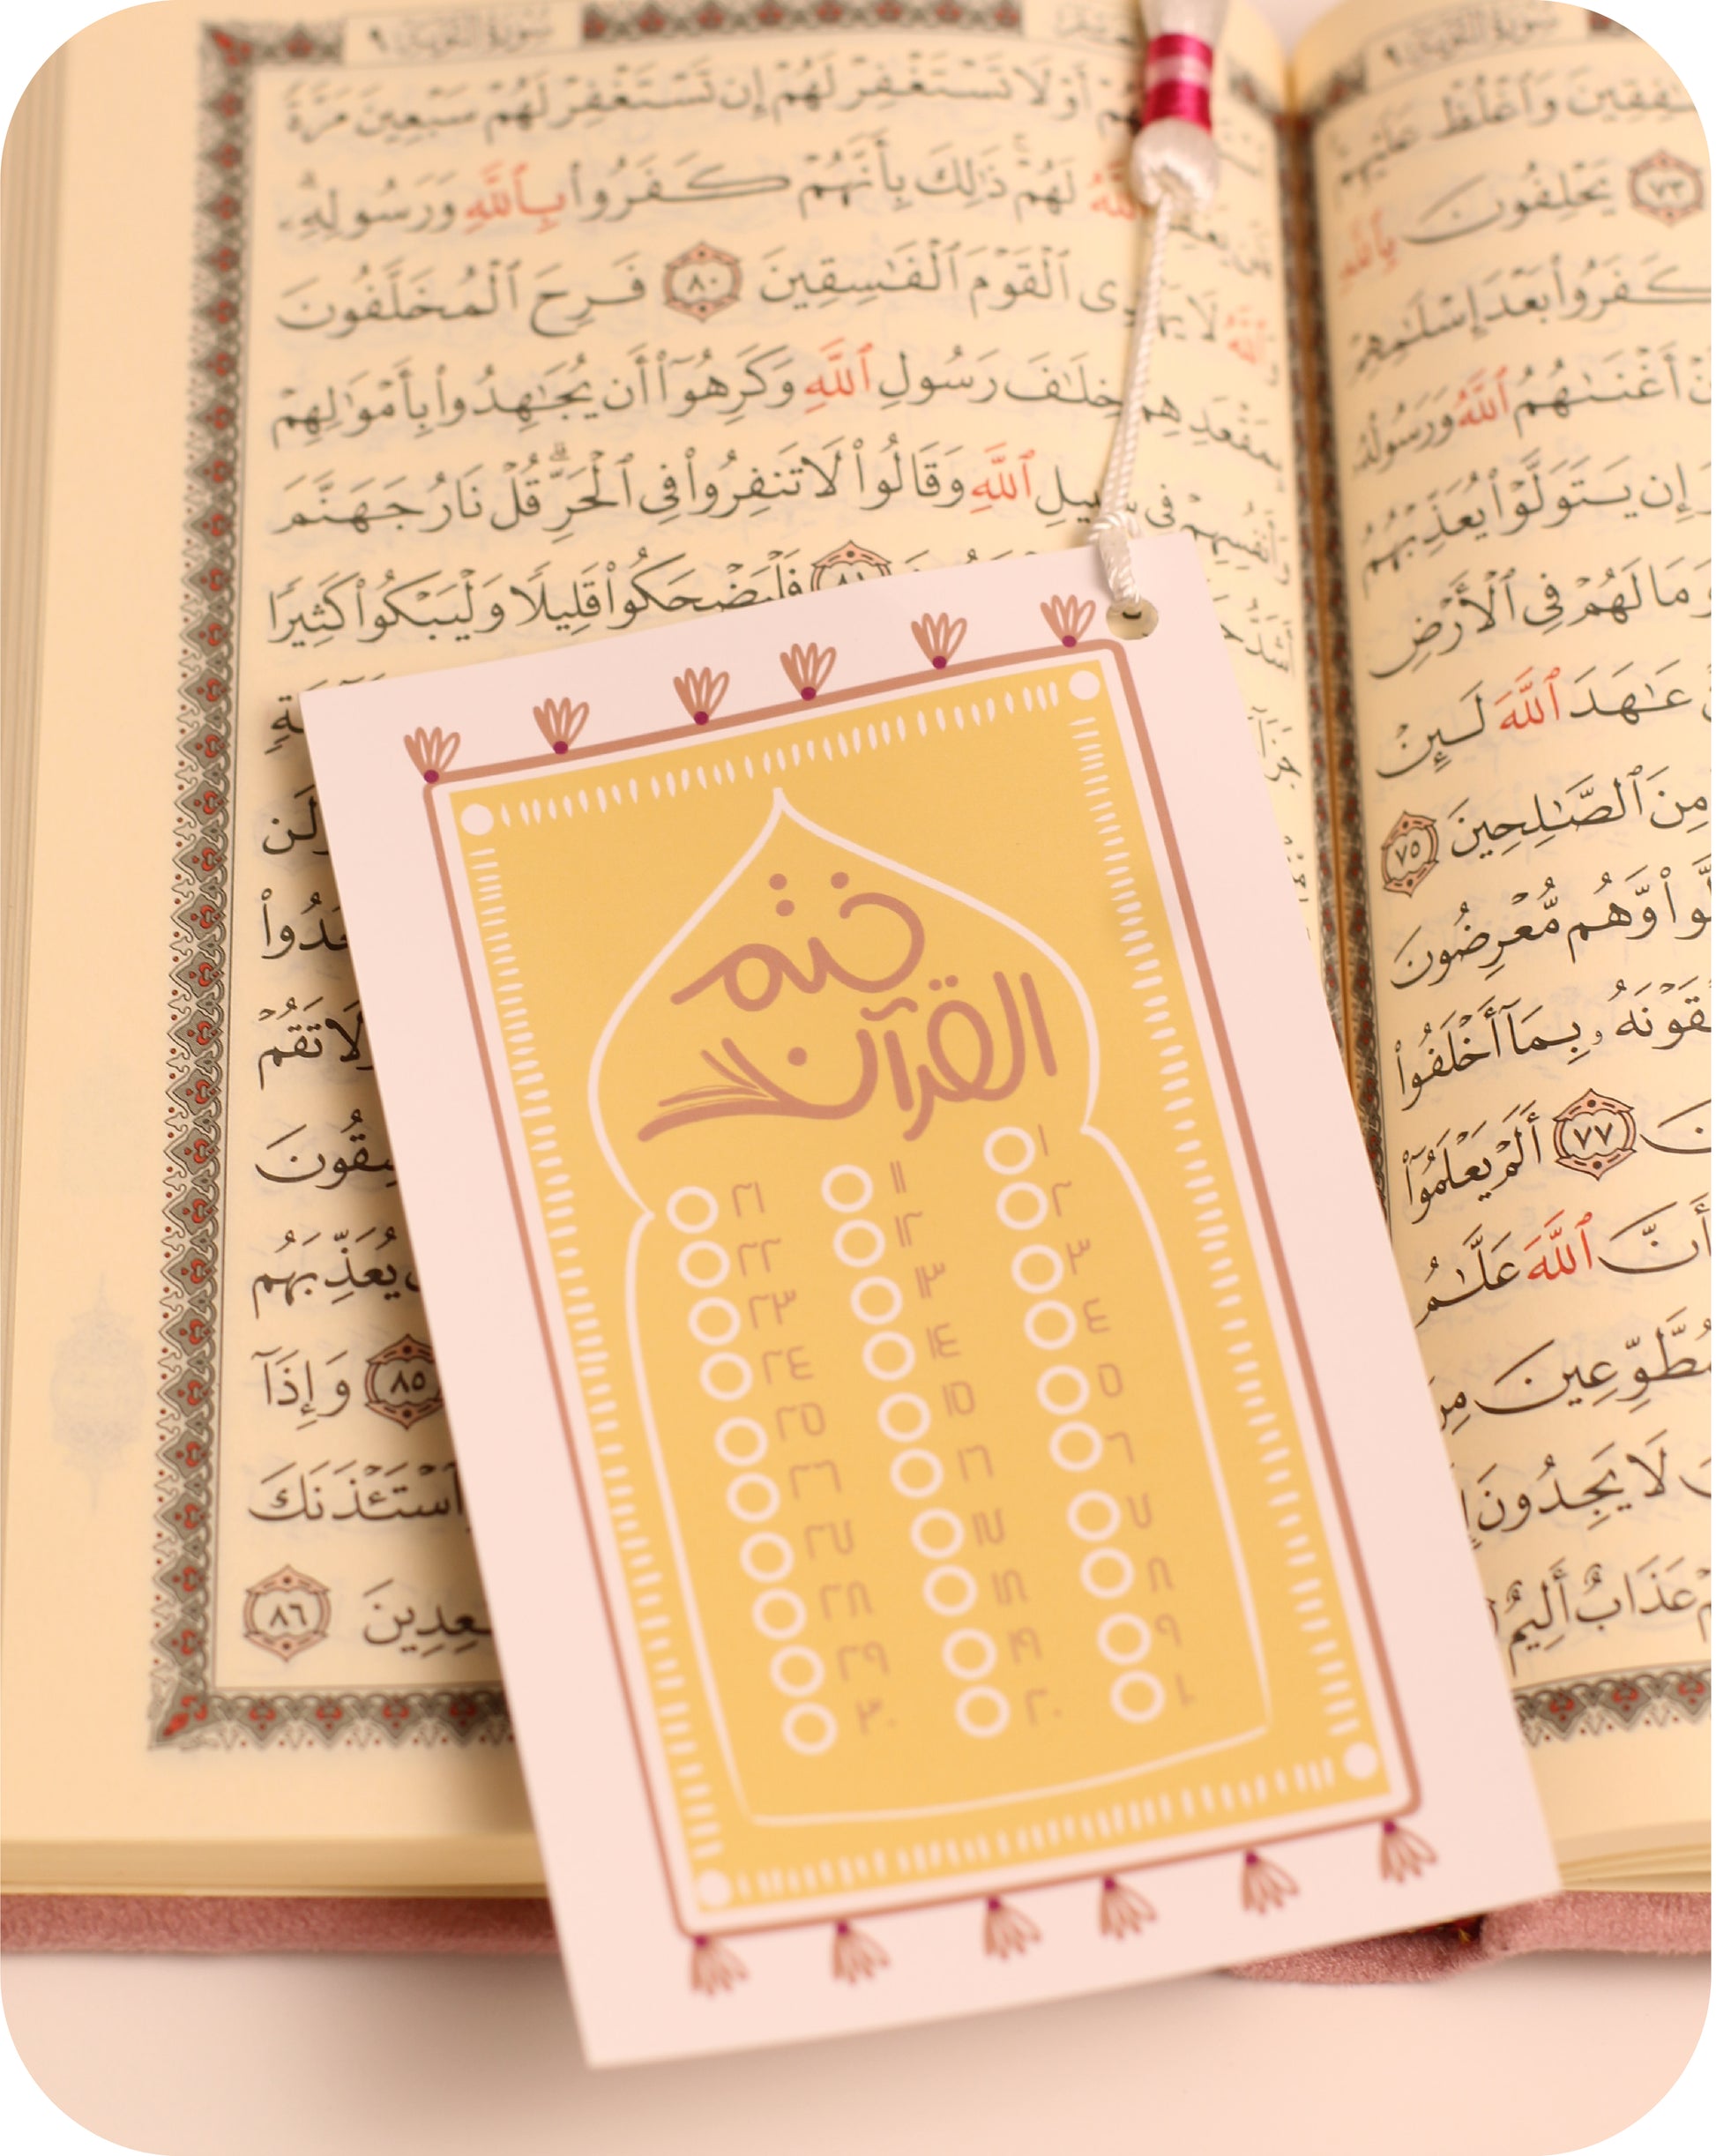 سُورَةُ التَّوْبَةِ ٩
وَٱغْلُظْ عَلَيْهِمْ
٧٣ يَحْلِفُونَ بِٱللَّهِ
كَفَرُوا۟ بَعْدَ إِسْلَٰمِهِمْ
أَغْنَىٰهُمُ ٱللَّهُ وَرَسُولُهُۥ
وَإِن يَتَوَلَّوْا۟ يُعَذِّبْهُمُ
وَمَا لَهُمْ فِى ٱلْأَرْضِ
عَٰهَدَ ٱللَّهَ لَئِنْ
مِنَ ٱلصَّٰلِحِينَ ٧٥
وَّهُم مُّعْرِضُونَ
بِمَآ أَخْلَفُوا۟
٧٧ أَلَمْ يَعْلَمُوٓا۟
أَنَّ ٱللَّهَ عَلَّٰمُ
لَا يَجِدُونَ
عَذَابٌ أَلِيمٌ
سُورَةُ التَّوْبَةِ ٩
أَوْ لَا تَسْتَغْفِرْ لَهُمْ إِن تَسْتَغْفِرْ لَهُمْ سَبْعِينَ مَرَّةً
ٱللَّهُ لَهُمْ ذَٰلِكَ بِأَنَّهُمْ كَفَرُوا۟ بِٱللَّهِ وَرَسُولِهِۦ
لَا يَهْدِى ٱلْقَوْمَ ٱلْفَٰسِقِينَ ٨٠ فَرِحَ ٱلْمُخَلَّفُونَ
بِمَقْعَدِهِمْ خِلَٰفَ رَسُولِ ٱللَّهِ وَكَرِهُوٓا۟ أَن يُجَٰهِدُوا۟ بِأَمْوَٰلِهِمْ
وَأَنفُسِهِمْ فِى سَبِيلِ ٱللَّهِ وَقَالُوا۟ لَا تَنفِرُوا۟ فِى ٱلْحَرِّ قُلْ نَارُ جَهَنَّمَ
أَشَدُّ ٨١ فَلْيَضْحَكُوا۟ قَلِيلًا وَلْيَبْكُوا۟ كَثِيرًا
جَزَآءً
لَا تَقُمْ
يُعَذِّبَهُم
٨٥ وَإِذَآ
ٱسْتَـْٔذَنَكَ
ٱلْقَٰعِدِينَ ٨٦
ختم
القرآن
١ ١١ ٢١
٢ ١٢ ٢٢
٣ ١٣ ٢٣
٤ ١٤ ٢٤
٥ ١٥ ٢٥
٦ ١٦ ٢٦
٧ ١٧ ٢٧
٨ ١٨ ٢٨
٩ ١٩ ٢٩
١٠ ٢٠ ٣٠